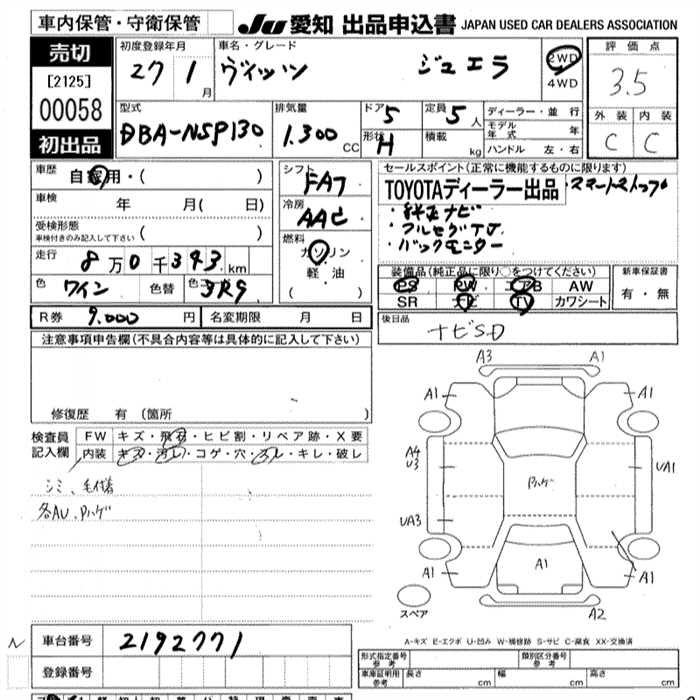 車内保管・守衛保管
JU 愛知 出品申込書 JAPAN USED CAR DEALERS ASSOCIATION
売切
[2125]
00058
初出品
初度登録年月 車名・グレード
27 1月 ヴィッツ ジュエラ
2WD
4WD
評価点
3.5
外装 内装
C C
型式 排気量 ドア 定員
DBA-NSP130 1.300 CC 5 5人
形状 積載
H kg
ディーラー・並行
モデル年式 年
ハンドル 左・右
車歴 自家用・( )
車検 年 月( 日)
受検形態
車検付きのみ記入して下さい ( )
走行 8万0千343km
色 ワイン 色替 色 3R9
シフト
FAT
冷房
AAC
燃料
ガソリン
軽油
( )
セールスポイント(正常に機能するものに限ります)
TOYOTAディーラー出品 ・スマートストップ
・純正ナビ
・フルセグTV
・バックモニター
装備品(純正品に限り○をつけてください)
PS PW エアB AW
SR ナビ TV カワシート
新車保証書
有・無
R券 9.000円 名変期限 月 日
後日品
ナビSD
注意事項申告欄(不具合内容等は具体的に記入して下さい)
修復歴 有(箇所 )
検査員
記入欄
FW キズ・飛石・ヒビ割・リペア跡・X要
内装 キズ・汚レ・コゲ・穴・スレ・キレ・破レ
シミ、毛付着
各AU、Pハゲ
A3 A1
A1 A1
A4
U3
UA1
Pハゲ
UA3
A1
A1 A1
A2
スペア
A-キズ E-エクボ U-凹み W-補修跡 S-サビ C-腐食 XX-交換済
車台番号 2192771
登録番号
形式指定番号
参考
類別区分番号
参考
車庫証明用
参考
長さ cm 幅 cm 高さ cm